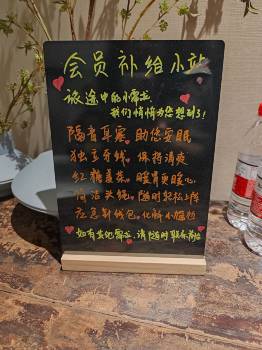 会员补给小站
旅途中的小需求,
我们悄悄为您想到了!
隔音耳塞。助您安眠
独立牙线。保持清爽
红糖姜茶。暖胃更暖心
简洁头绳。随时轻松上阵
应急针线包。化解小尴尬
如有其他需求,请随时联系前台